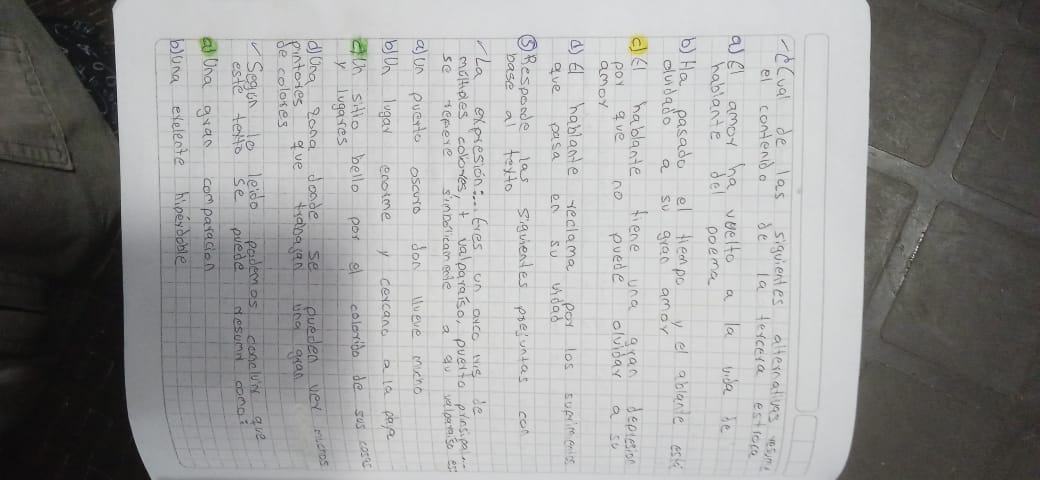 ✓ ¿Cual de las siguientes alternativas resume
el contenido de la tercera estrofa
a) El amor ha vuelto a la vida de
hablante del poema
b) Ha pasado el tiempo y el ablante está
olvidado a su gran amor
c) El hablante tiene una gran depresion
por que no puede olvidar a su
amor
d) El hablante reclama por los suprimientos
que pasa en su vidad
⑤ Responde las siguientes preguntas con
base al texto
✓ La expresión:.. Eres un arco iris de
multiples colores, t valparaíso, puerto prinsipal...
se refiere simbolicamente a qu valparaiso es:
a) Un puerto oscuro don llueve mucho
b) Un lugar enorme y cercano a la papa
c) Un sitio bello por el colorido de sus casas
y lugares
d) Una zona donde se pueden ver muchos
pintores que trabajan una gran
de colores
✓ Según lo leido podemos concluir que
este texto se puede resumir como:
a) Una gran comparacion
b) Una exelente hipérdoble